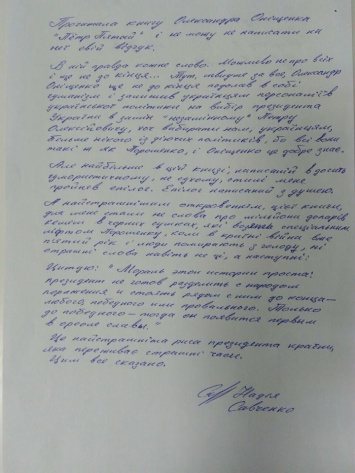 Прочитала книгу Олександра Онищенка
"Пётр Пятый" і не можу не написати на
неї свій відгук.
В ній правда кожне слово. Можливо не про всіх
і що не до кінця... Тут, швидше за все, Олександр
Онищенко ще не до кінця поборов в собі
і залишив українцям персоналіїв
української політики на вибір президента
України в замін "незамінному" Петру
Олексійовичу, хоч вибирати нам, українцям,
більше нічого із цих політиків, бо всі вони
такі ж як Порошенко, і Онищенко це добре знає.
Але найбільше в цій книзі, написаній в досить
гумористичному, не сухому, стилі мене
пройняв епілог. Епілог написаний з душею.
А найстрашнішим откровенням, цієї книги,
для мене стали не слова про мільйони доларів
кешем в чорних сумках, які возили спеціальним
ліфтом Порошенку, коли в країні війна вже
п'ятий рік і люди помирають з голоду, ні
страшні слова навіть не ці, а наступні:
Цитую: "Мораль этой истории проста:
президент не готов разделить с народом
поражения и стоять рядом с ним до конца –
любого, победного или провального. Только
до победного – тогда он появится первым
в ореоле славы."
Це найстрашніша риса президента країни,
яка переживає страшні часи.
Цим все сказано.
Надія
Савченко